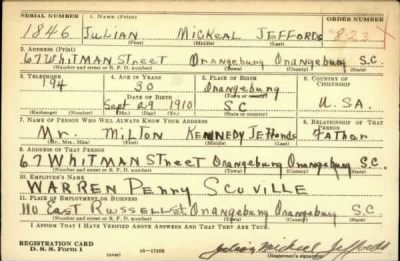 SERIAL NUMBER 1. NAME (Print) ORDER NUMBER
1846 JULIAN MICKEAL JEFFORDS 823
(First) (Middle) (Last)
2. ADDRESS (Print)
67 WHITMAN STREET Orangeburg Orangeburg S.C.
(Number and street or R. F. D. number) (Town) (County) (State)
3. TELEPHONE 4. AGE IN YEARS 5. PLACE OF BIRTH 6. COUNTRY OF CITIZENSHIP
194 30 Orangeburg
DATE OF BIRTH (Town or county)
Sept 29 1910 S C U.S.A.
(Exchange) (Number) (Mo.) (Day) (Yr.) (State or country)
7. NAME OF PERSON WHO WILL ALWAYS KNOW YOUR ADDRESS 8. RELATIONSHIP OF THAT PERSON
Mr. MILTON KENNEDY JEFFORDS FATHER
(Mr., Mrs., Miss) (First) (Middle) (Last)
9. ADDRESS OF THAT PERSON
67 WHITMAN STREET Orangeburg Orangeburg S.C.
(Number and street or R. F. D. number) (Town) (County) (State)
10. EMPLOYER'S NAME
WARREN PENNY SCOVILLE
11. PLACE OF EMPLOYMENT OR BUSINESS
110 EAST RUSSELL St. Orangeburg Orangeburg S.C
(Number and street or R. F. D. number) (Town) (County) (State)
I AFFIRM THAT I HAVE VERIFIED ABOVE ANSWERS AND THAT THEY ARE TRUE.
REGISTRATION CARD
D. S. S. Form 1 (over) Julian Mickeal Jeffords
(Registrant's signature)